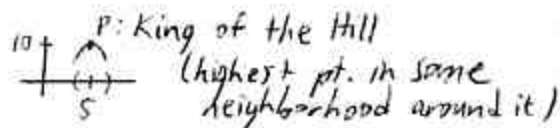 P: King of the Hill
10
(highest pt. in some
5
neighborhood around it)